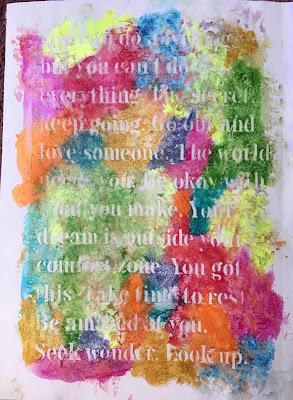 do
but you can't do
everything. The secret:
keep going. Go out and
love someone. The world
you. Be okay with
what you make. Your
dream is outside your
comfort zone. You got
this. Take time to rest.
Be amazed at you.
Seek wonder. Look up.